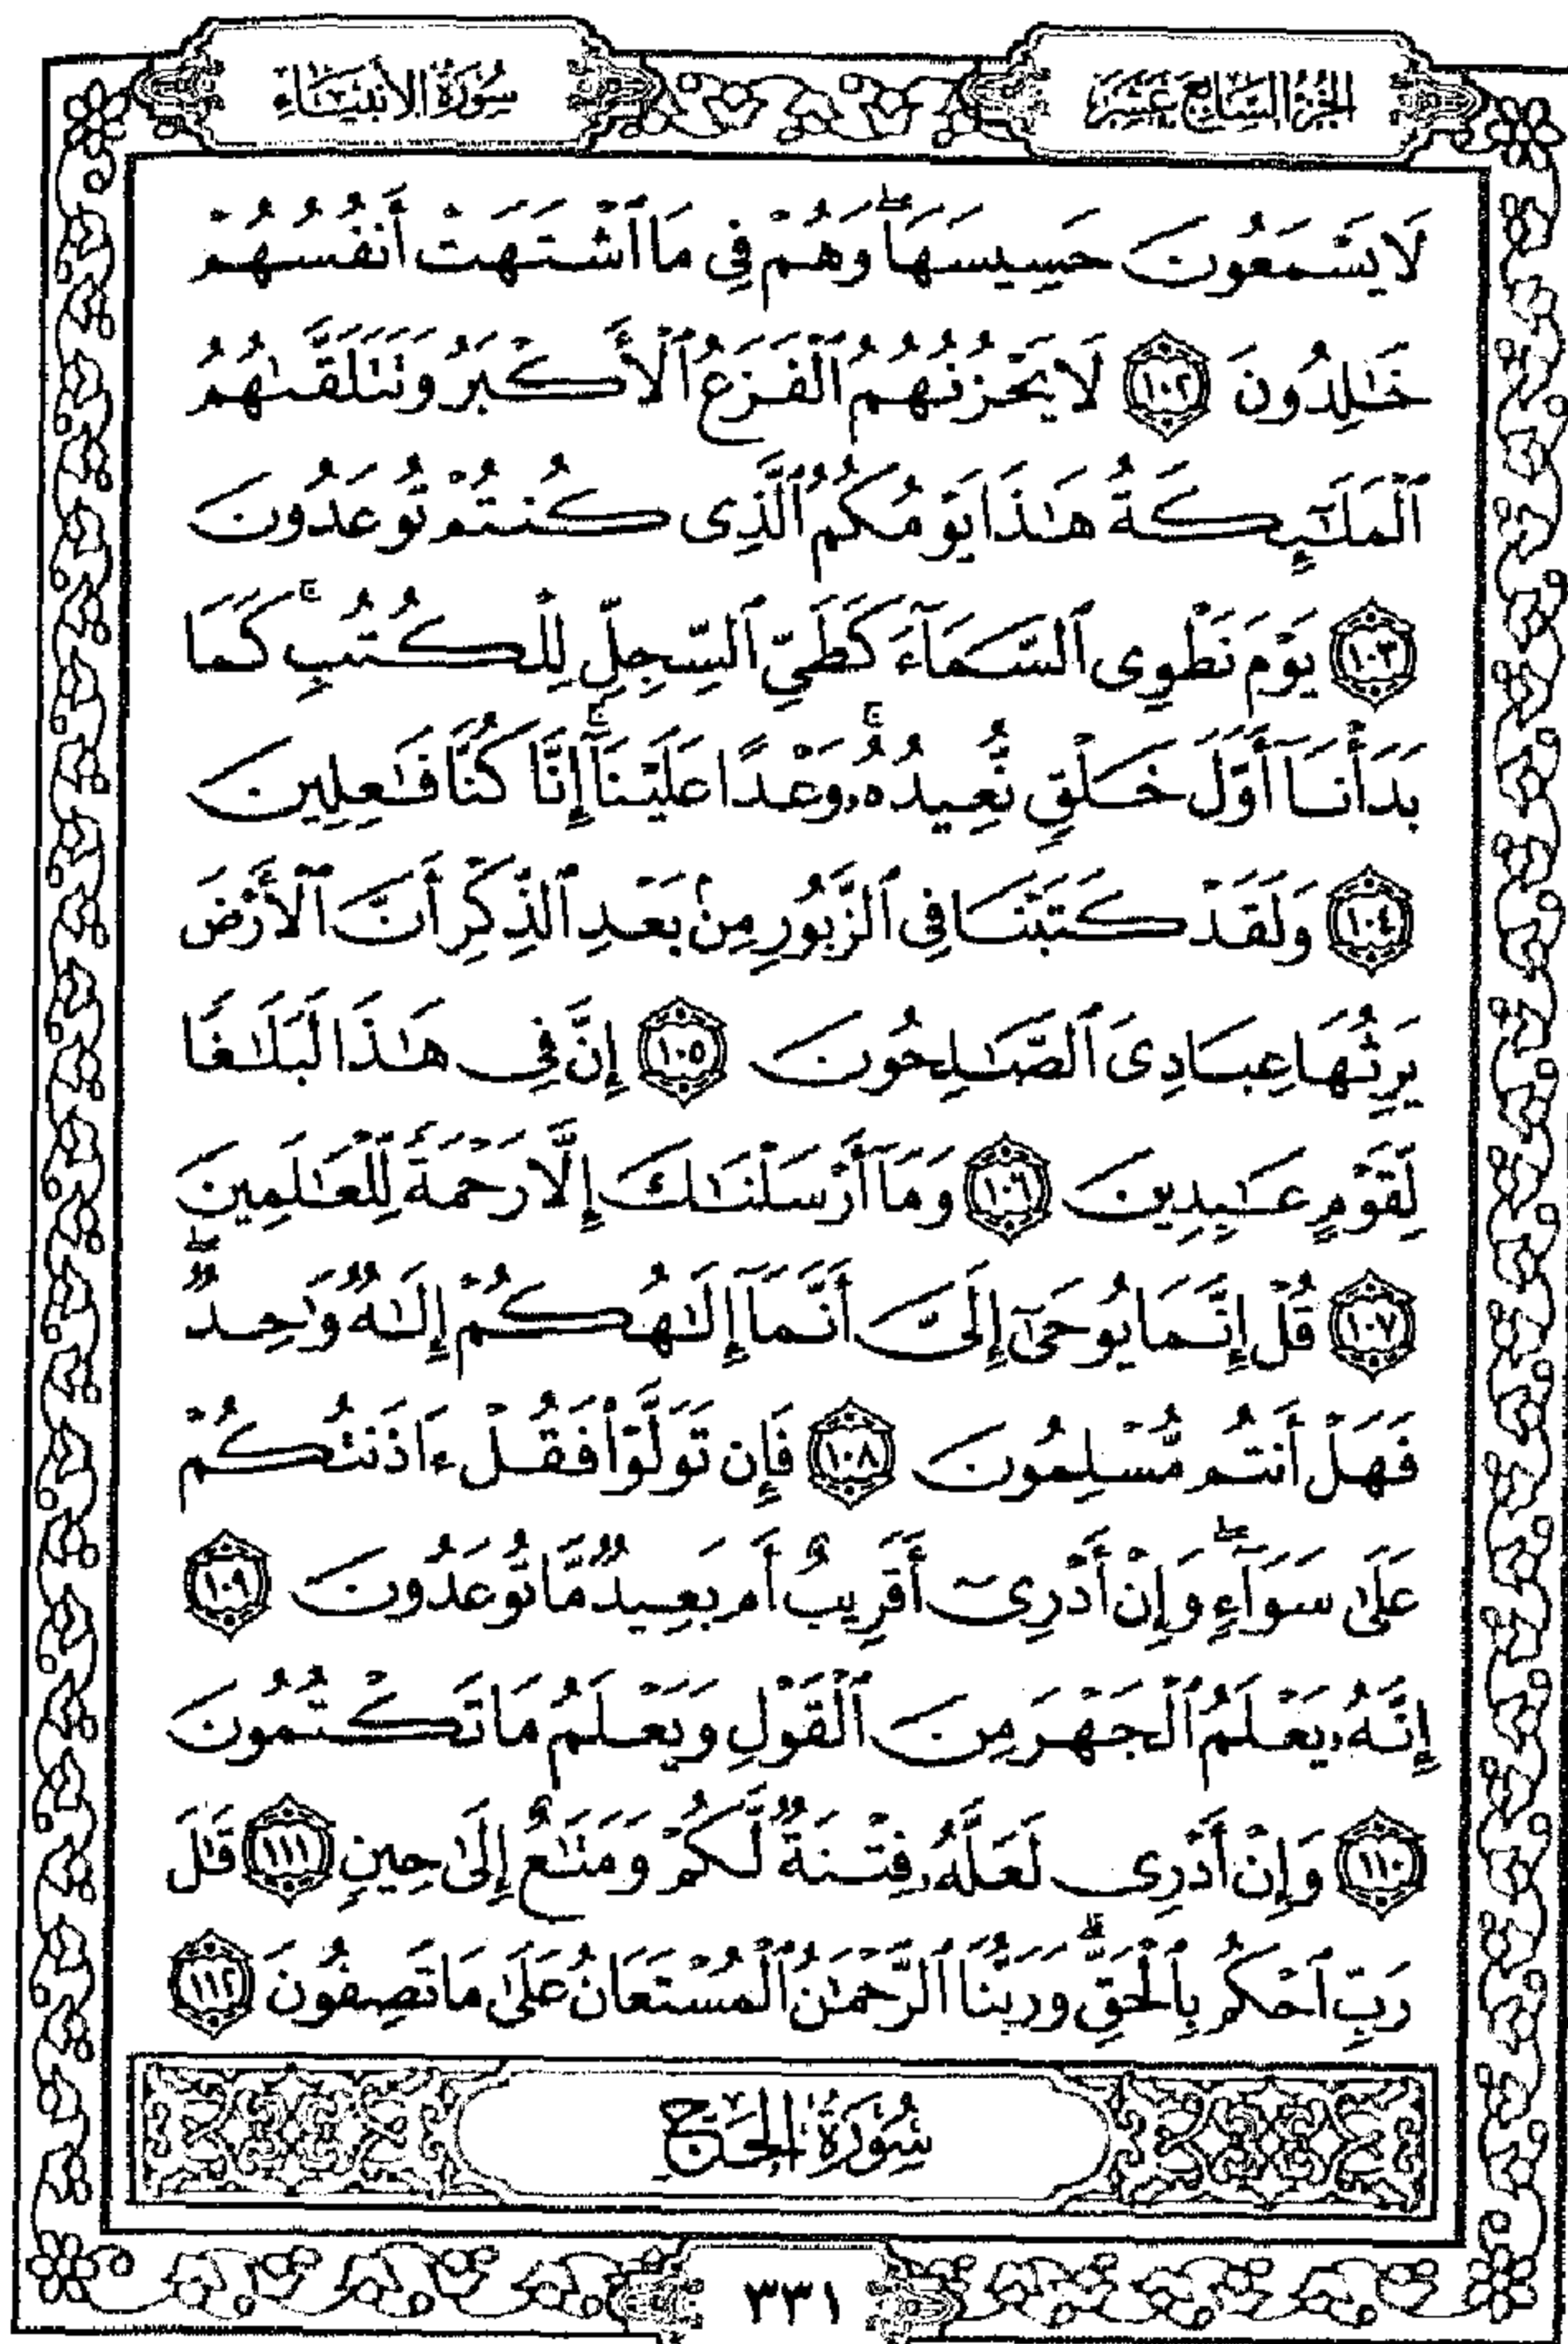 الجزء السابع عشر
سورة الأنبياء
لَا يَسْمَعُونَ حَسِيسَهَا ۖ وَهُمْ فِي مَا ٱشْتَهَتْ أَنفُسُهُمْ
خَٰلِدُونَ ١٠٢ لَا يَحْزُنُهُمُ ٱلْفَزَعُ ٱلْأَكْبَرُ وَتَتَلَقَّىٰهُمُ
ٱلْمَلَٰٓئِكَةُ هَٰذَا يَوْمُكُمُ ٱلَّذِى كُنتُمْ تُوعَدُونَ
١٠٣ يَوْمَ نَطْوِى ٱلسَّمَآءَ كَطَىِّ ٱلسِّجِلِّ لِلْكُتُبِ ۚ كَمَا
بَدَأْنَآ أَوَّلَ خَلْقٍ نُّعِيدُهُۥ ۚ وَعْدًا عَلَيْنَآ ۚ إِنَّا كُنَّا فَٰعِلِينَ
١٠٤ وَلَقَدْ كَتَبْنَا فِى ٱلزَّبُورِ مِنۢ بَعْدِ ٱلذِّكْرِ أَنَّ ٱلْأَرْضَ
يَرِثُهَا عِبَادِىَ ٱلصَّٰلِحُونَ ١٠٥ إِنَّ فِى هَٰذَا لَبَلَٰغًا
لِّقَوْمٍ عَٰبِدِينَ ١٠٦ وَمَآ أَرْسَلْنَٰكَ إِلَّا رَحْمَةً لِّلْعَٰلَمِينَ
١٠٧ قُلْ إِنَّمَا يُوحَىٰٓ إِلَىَّ أَنَّمَآ إِلَٰهُكُمْ إِلَٰهٌ وَٰحِدٌ ۖ
فَهَلْ أَنتُم مُّسْلِمُونَ ١٠٨ فَإِن تَوَلَّوْا۟ فَقُلْ ءَاذَنتُكُمْ
عَلَىٰ سَوَآءٍ ۖ وَإِنْ أَدْرِىٓ أَقَرِيبٌ أَم بَعِيدٌ مَّا تُوعَدُونَ ١٠٩
إِنَّهُۥ يَعْلَمُ ٱلْجَهْرَ مِنَ ٱلْقَوْلِ وَيَعْلَمُ مَا تَكْتُمُونَ
١١٠ وَإِنْ أَدْرِى لَعَلَّهُۥ فِتْنَةٌ لَّكُمْ وَمَتَٰعٌ إِلَىٰ حِينٍ ١١١ قَٰلَ
رَبِّ ٱحْكُم بِٱلْحَقِّ ۗ وَرَبُّنَا ٱلرَّحْمَٰنُ ٱلْمُسْتَعَانُ عَلَىٰ مَا تَصِفُونَ ١١٢
سُورَةُ الحَجِّ
٣٣١